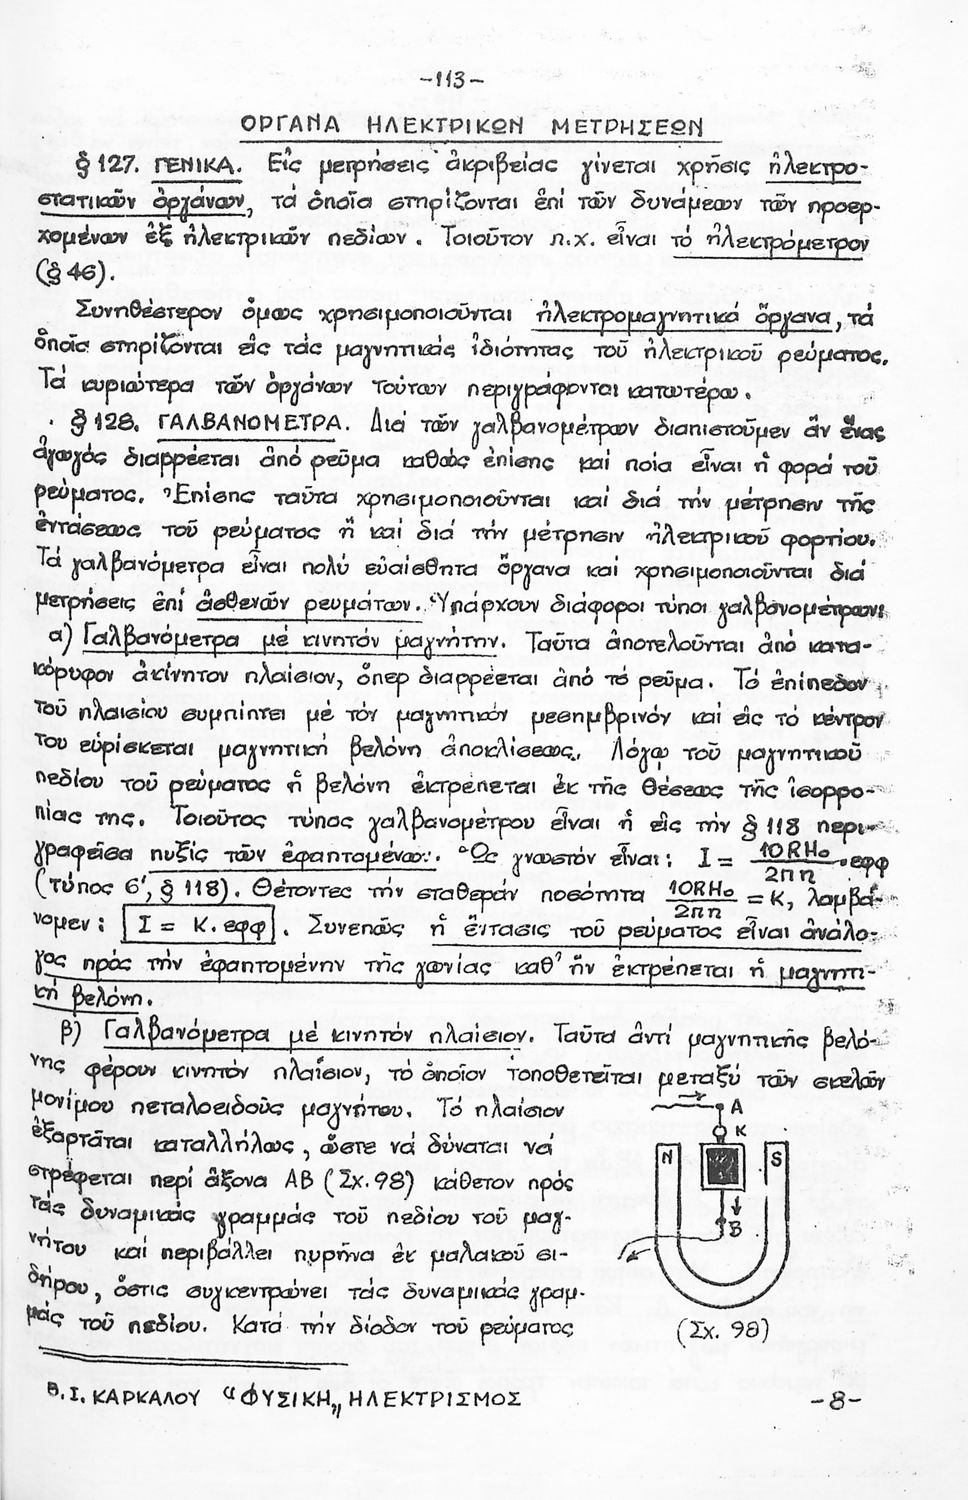 -113-
ΟΡΓΑΝΑ ΗΛΕΚΤΡΙΚΩΝ ΜΕΤΡΗΣΕΩΝ
§ 127. ΓΕΝΙΚΑ. Εἰς μετρήσεις ἀκριβείας γίνεται χρῆσις ἠλεκτρο-
στατικῶν ὀργάνων, τά ὁποῖα στηρίζονται ἐπί τῶν δυνάμεων τῶν προερ-
χομένων ἐξ ἠλεκτρικῶν πεδίων. Τοιοῦτον π.χ. εἶναι τό ἠλεκτρόμετρον
(§ 46).
Συνηθέστερον ὅμως χρησιμοποιοῦνται ἠλεκτρομαγνητικά ὄργανα, τά
ὁποῖα στηρίζονται εἰς τάς μαγνητικάς ἰδιότητας τοῦ ἠλεκτρικοῦ ρεύματος.
Τά κυριώτερα τῶν ὀργάνων τούτων περιγράφονται κατωτέρω.
§ 128. ΓΑΛΒΑΝΟΜΕΤΡΑ. Διά τῶν γαλβανομέτρων διαπιστοῦμεν ἄν ἕνας
ἀγωγός διαρρέεται ἀπό ρεῦμα καθώς ἐπίσης καί ποία εἶναι ἡ φορά τοῦ
ρεύματος. Ἐπίσης ταῦτα χρησιμοποιοῦνται καί διά τήν μέτρησιν τῆς
ἐντάσεως τοῦ ρεύματος ἤ καί διά τήν μέτρησιν ἠλεκτρικοῦ φορτίου.
Τά γαλβανόμετρα εἶναι πολύ εὐαίσθητα ὄργανα καί χρησιμοποιοῦνται διά
μετρήσεις ἐπί ἀσθενῶν ρευμάτων. Ὑπάρχουν διάφοροι τύποι γαλβανομέτρων:
α) Γαλβανόμετρα μέ κινητόν μαγνήτην. Ταῦτα ἀποτελοῦνται ἀπό κατα-
κόρυφον ἀκίνητον πλαίσιον, ὅπερ διαρρέεται ἀπό τό ρεῦμα. Τό ἐπίπεδον
τοῦ πλαισίου συμπίπτει μέ τόν μαγνητικόν μεσημβρινόν καί εἰς τό κέντρον
του εὑρίσκεται μαγνητική βελόνη ἀποκλίσεως. Λόγῳ τοῦ μαγνητικοῦ
πεδίου τοῦ ρεύματος ἡ βελόνη ἐκτρέπεται ἐκ τῆς θέσεως τῆς ἰσορρο-
πίας της. Τοιοῦτος τύπος γαλβανομέτρου εἶναι ἡ εἰς τήν § 118 περι-
γραφεῖσα πυξίς τῶν ἐφαπτομένων. Ὡς γνωστόν εἶναι: I = 10RHo/2πn · εφφ
(τύπος 6', § 118). Θέτοντες τήν σταθεράν ποσότητα 10RHo/2πn = K, λαμβά-
νομεν: I = K. εφφ. Συνεπῶς ἡ ἔντασις τοῦ ρεύματος εἶναι ἀνάλο-
γος πρός τήν ἐφαπτομένην τῆς γωνίας καθ' ἥν ἐκτρέπεται ἡ μαγνητι-
κή βελόνη.
β) Γαλβανόμετρα μέ κινητόν πλαίσιον. Ταῦτα ἀντί μαγνητικῆς βελό-
νης φέρουν κινητόν πλαίσιον, τό ὁποῖον τοποθετεῖται μεταξύ τῶν σκελῶν
μονίμου πεταλοειδοῦς μαγνήτου. Τό πλαίσιον
ἐξαρτᾶται καταλλήλως, ὥστε νά δύναται νά
στρέφεται περί ἄξονα ΑΒ (Σχ. 98) κάθετον πρός
τάς δυναμικάς γραμμάς τοῦ πεδίου τοῦ μαγ-
νήτου καί περιβάλλει πυρῆνα ἐκ μαλακοῦ σι-
δήρου, ὅστις συγκεντρώνει τάς δυναμικάς γραμ-
μάς τοῦ πεδίου. Κατά τήν δίοδον τοῦ ρεύματος
A
K
N
S
B
(Σχ. 98)
Β. Ι. ΚΑΡΚΑΛΟΥ "ΦΥΣΙΚΗ" ΗΛΕΚΤΡΙΣΜΟΣ
-8-